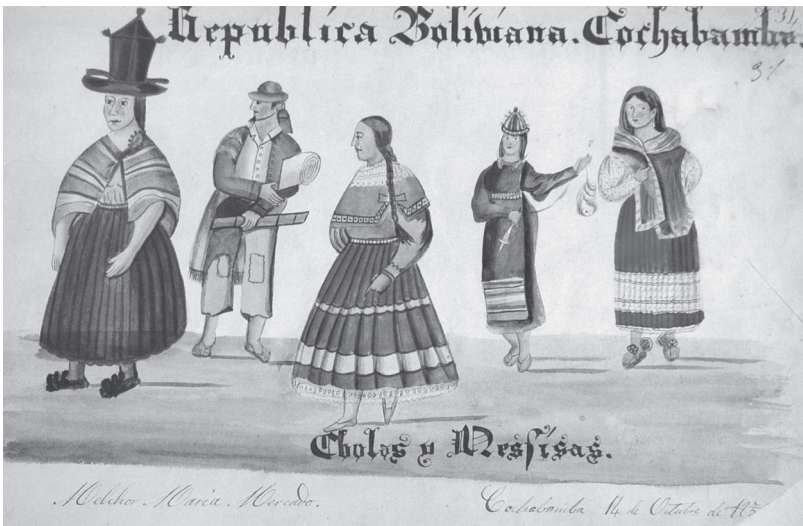 Republica Boliviana. Cochabamba.
31
Cholas y Messisas.
Melchor María Mercado.
Cochabamba 14 de Octubre de